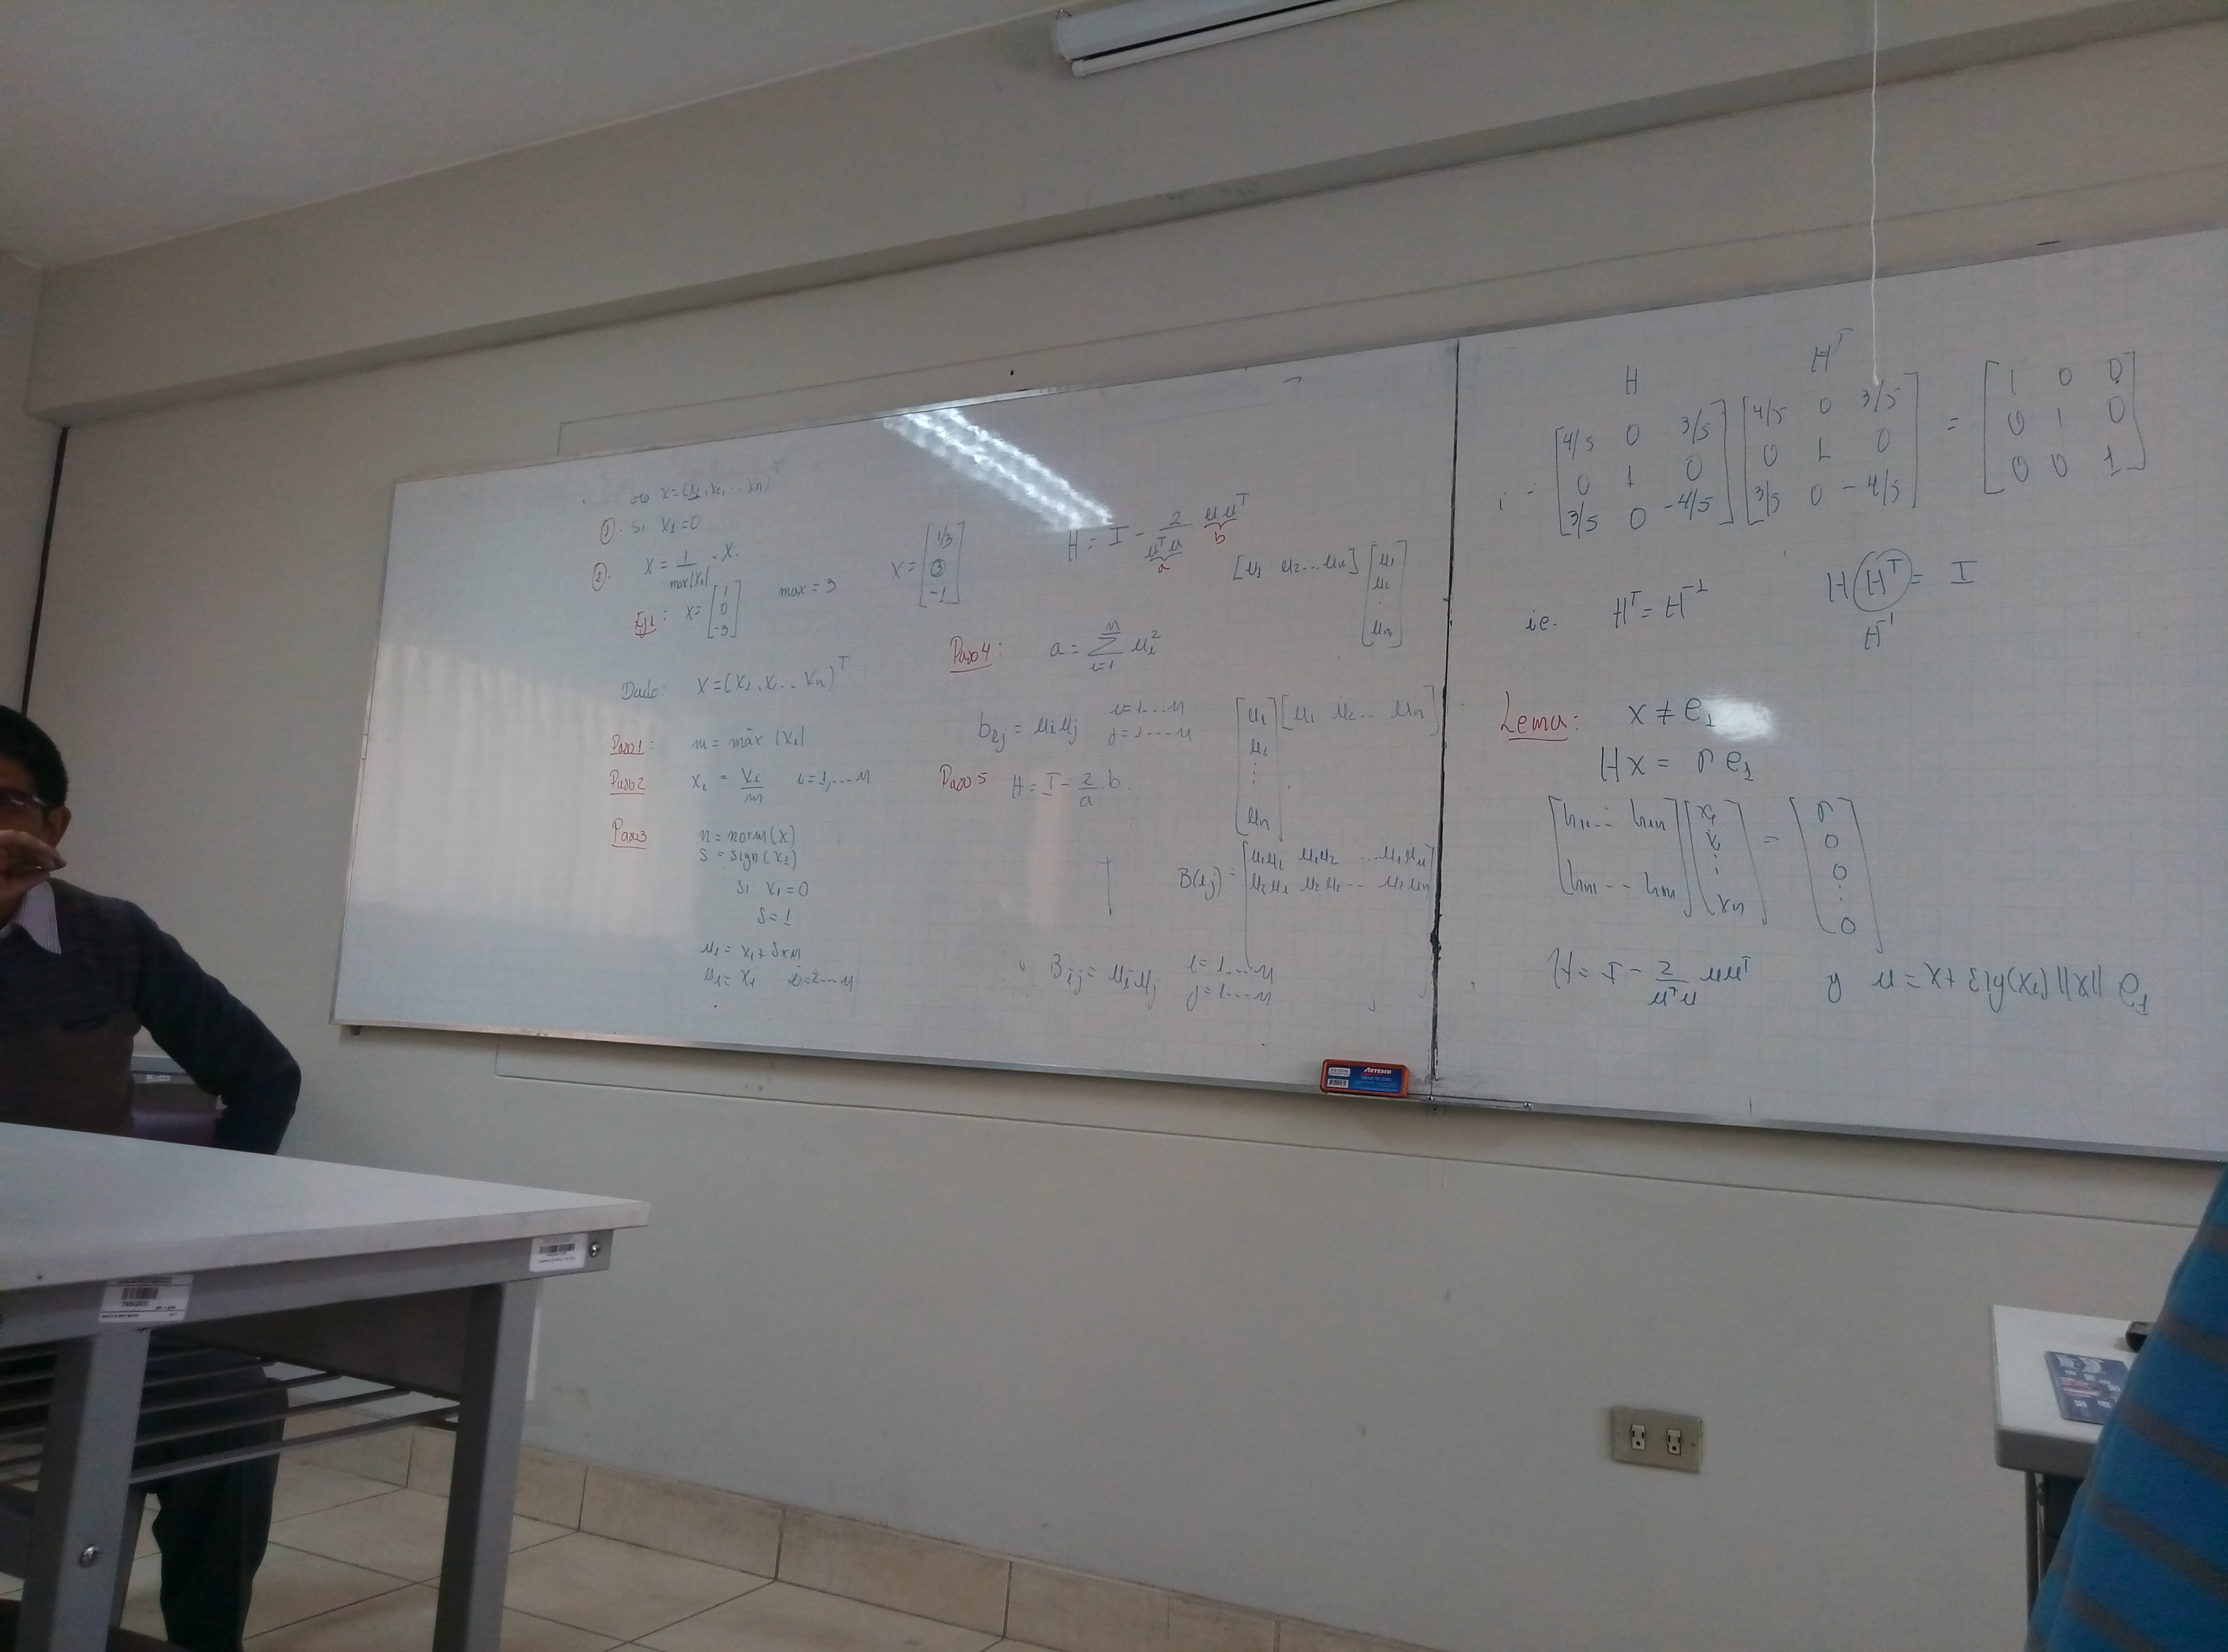 x=(x1, x2, ... xn)^T
①. Si x1=0
②. x = 1/max|xi| · x.
Ej1: x = [1 0 -3]
max = 3
x = [1/3 -1]
Dado: x = (x1, x2 ... xn)^T
Paso1: m = máx |xi|
Paso2 xi = xi/m i=1,...n
Paso3 n = norm(x)
s = sign(x1)
Si x1=0
s=1
u1 = x1 + s*n
ui = xi i=2...n
H = I - 2/(u^T u) u u^T
a b
[u1 u2 ... un] [u1 u2 ⋮ un]
Paso4: a = Σ i=1 n ui^2
bij = ui uj i=1...n
j=1...n
[u1 u2 ⋮ un] [u1 u2 ... un]
Paso5 H = I - 2/a b.
B(ij) = [u1u1 u1u2 ... u1un
u2u1 u2u2 ... u2un
Bij = ui uj i=1...n
j=1...n
ARTESCO
H H^T
[4/5 0 3/5] [4/5 0 3/5] = [1 0 0]
[0 1 0] [0 1 0] [0 1 0]
[3/5 0 -4/5] [3/5 0 -4/5] [0 0 1]
ie. H^T = H^-1
H H^T = I
H^-1
Lema: x ≠ e1
Hx = r e1
[h11 ... h1n] [x1 x2 ⋮ xn] = [r 0 0 ⋮ 0]
[hn1 ... hnn]
H = I - 2/(u^T u) u u^T y u = x + sig(x1) ||x|| e1